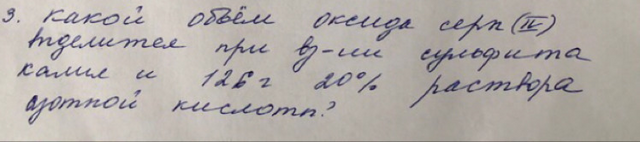 3. Какой объём оксида серы (IV)
выделится при вз-ии сульфита
калия и 126 г 20% раствора
азотной кислоты?